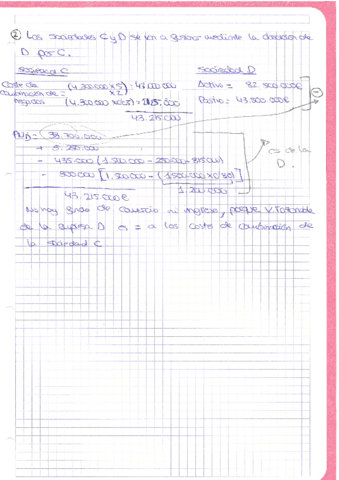 ② Las sociedades C y D se van a fusionar mediante la absorción de
D por C.
Sociedad C Sociedad D
Coste de combinación de negocios = (4.300.000 x 5) x 2) = 43.000.000 Activo = 82.500.000€
(4.300.000 x 0'05) = 215.000 Pasivo = 43.800.000€
43.215.000
38.700.000
+ 5.250.000
- 435.000 (1.500.000 - 250.000 - 815.000)
- 300.000 [1.500.000 - (1.500.000 x 0'80)]
1.200.000
43.215.000€
es de la
D.
No hay fondo de comercio ni ingreso, porque V. razonable
de la empresa D es = a los costes de combinación de
la sociedad C